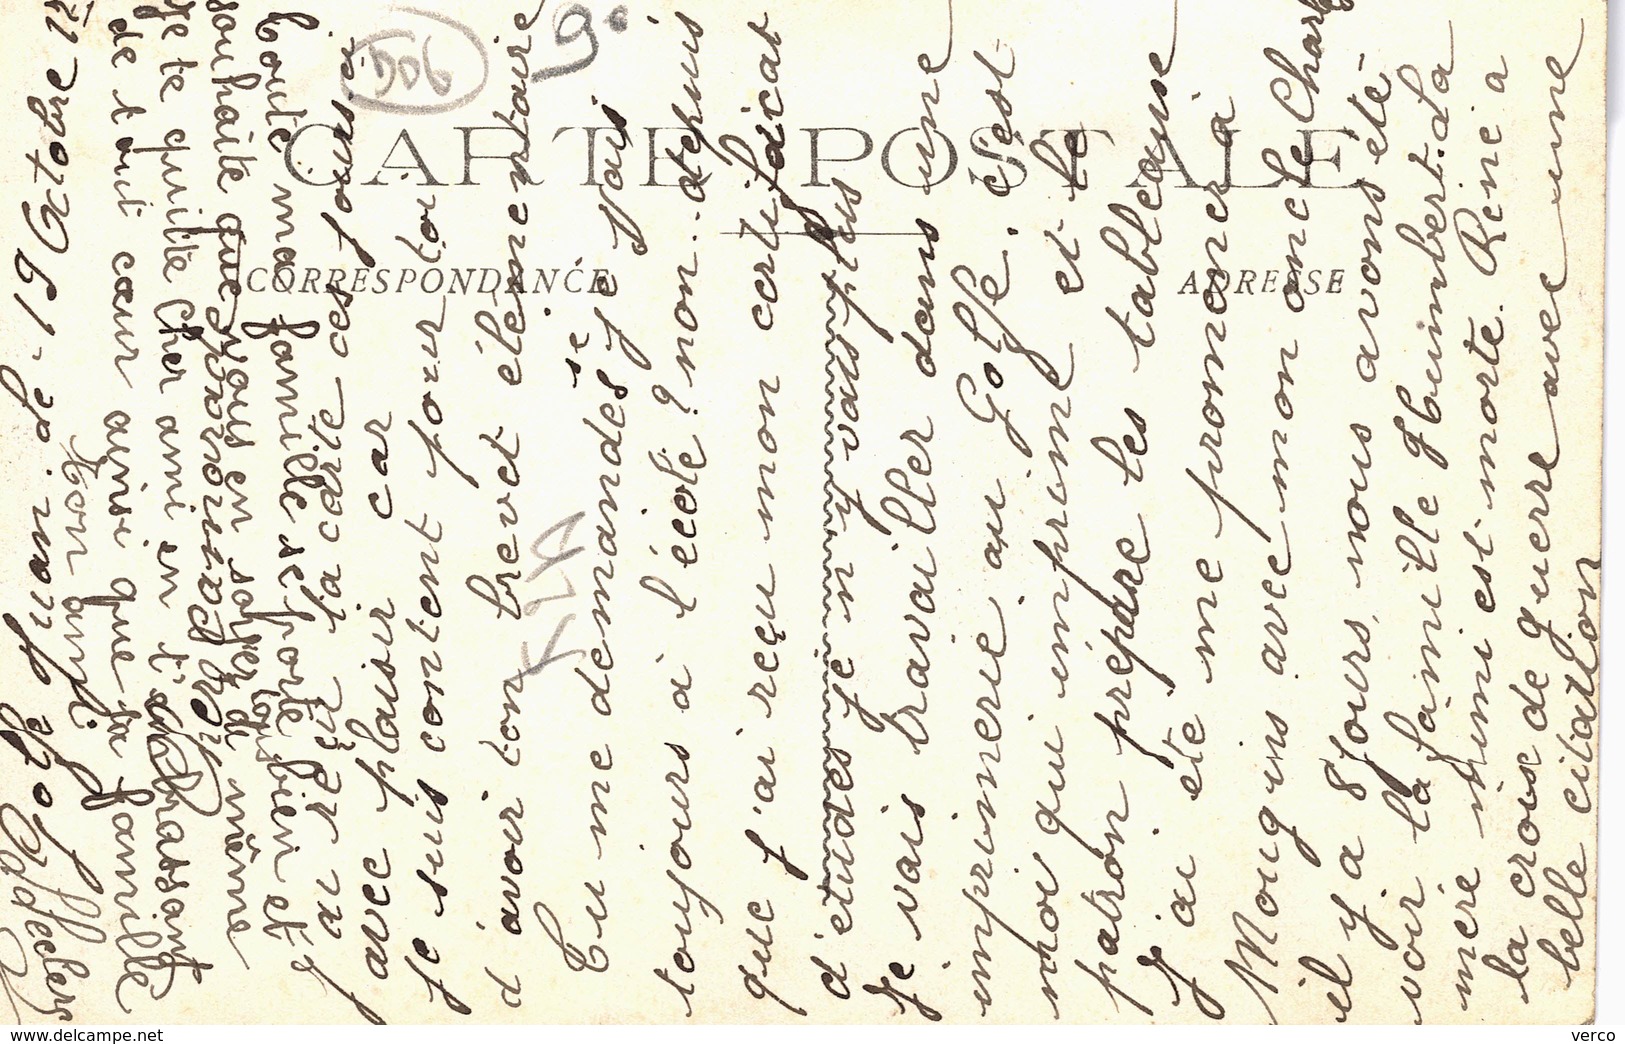 Golfe Juan. le - 19 Octobre 12
J'ai reçu ta carte ces jours-ci
avec plaisir car
je suis content pour toi
d'avoir ton brevet élémentaire
Tu me demandes si je vais
toujours à l'école? non. depuis
que j'ai reçu mon certificat
d'études je n'y vais plus
Je vais travailler dans une
imprimerie au Golfe. c'est
moi qui imprime et le
patron prépare les tableaux
J'ai été me promener à
Mougins avec mon oncle Charles
il y a 8 jours, nous avons été
voir la famille Humbert. La
mère mimi est morte. René a
la croix de guerre avec une
belle citation
Toute ma famille se porte bien et
souhaite que vous en soyez de même
Je te quitte cher ami en t'embrassant
de tout cœur ainsi que ta famille
Ton ami
CARTE POSTALE
CORRESPONDANCE
ADRESSE
906
9.
verco